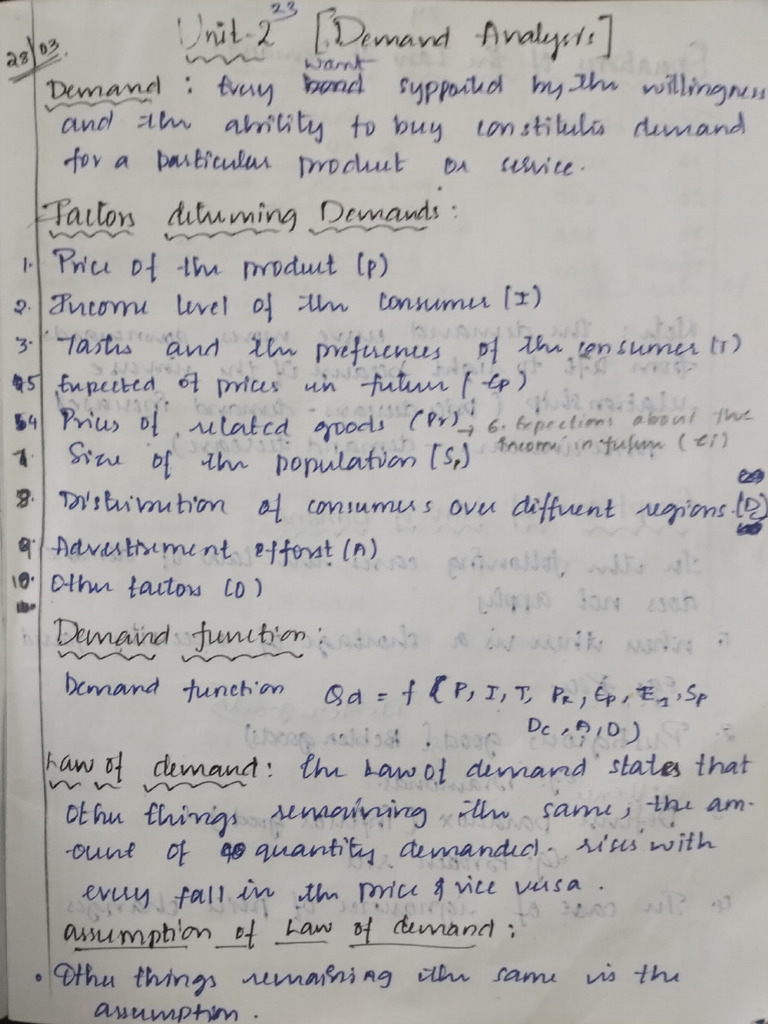 23
28/03.
Unit-2 [Demand Analysis]
want
Demand : Every supported by the willingness
and the ability to buy constitutes demand
for a particular product or service.
Factors determing Demands :
1. Price of the product (P)
2. Income level of the consumer (I)
3. Tastes and the preferences of the consumer (T)
5 Expected of prices in future (Ep)
4 Prices of related goods (Pr) → 6. Expections about the
income in future (EI)
7. Size of the population (Sp)
8. Distribution of consumers over diffrent regions. (Dc)
9. Advertisement efforst (A)
10. Other factors (O)
Demand function :
Demand function Qd = f (P, I, T, PR, Ep, EI, Sp
Dc, A, O)
Law of demand : The Law of demand states that
other things remaining the same, the am-
ount of quantity demanded. rises with
every fall in the price & vice versa.
assumption of Law of demand :
• Other things remaining the same is the
assumption.